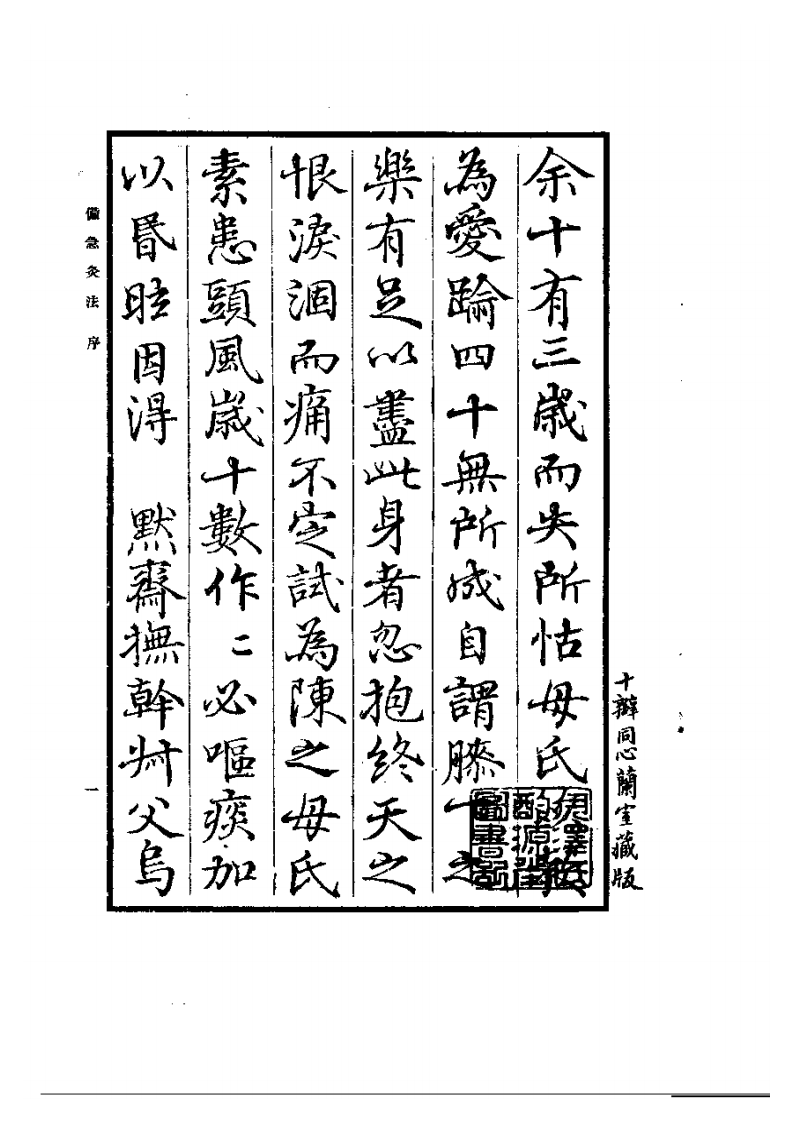 十辮同心蘭室藏版
余十有三歲而失所怙母氏
為愛踰四十無所成自謂膝下之
樂有足以盡此身者忽抱終天之
恨淚涸而痛不定試為陳之母氏
素患頭風歲十數作〻必嘔痰加
以昬眩因得　默齋撫幹艸父烏
備急灸法　序
一